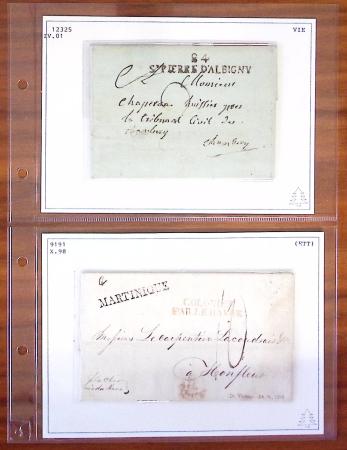 12325
IV.01
VIE
84
ST PIERRE D'ALBIGNY
Monsieur
Chaperon huissier près
le tribunal Civil de
Chambery
Chambery
9191
X.98
(RTT)
MARTINIQUE
COLONIES
PAR LE HAVRE
10
Messieurs Lecarpentier Lacoudrais
à Honfleur